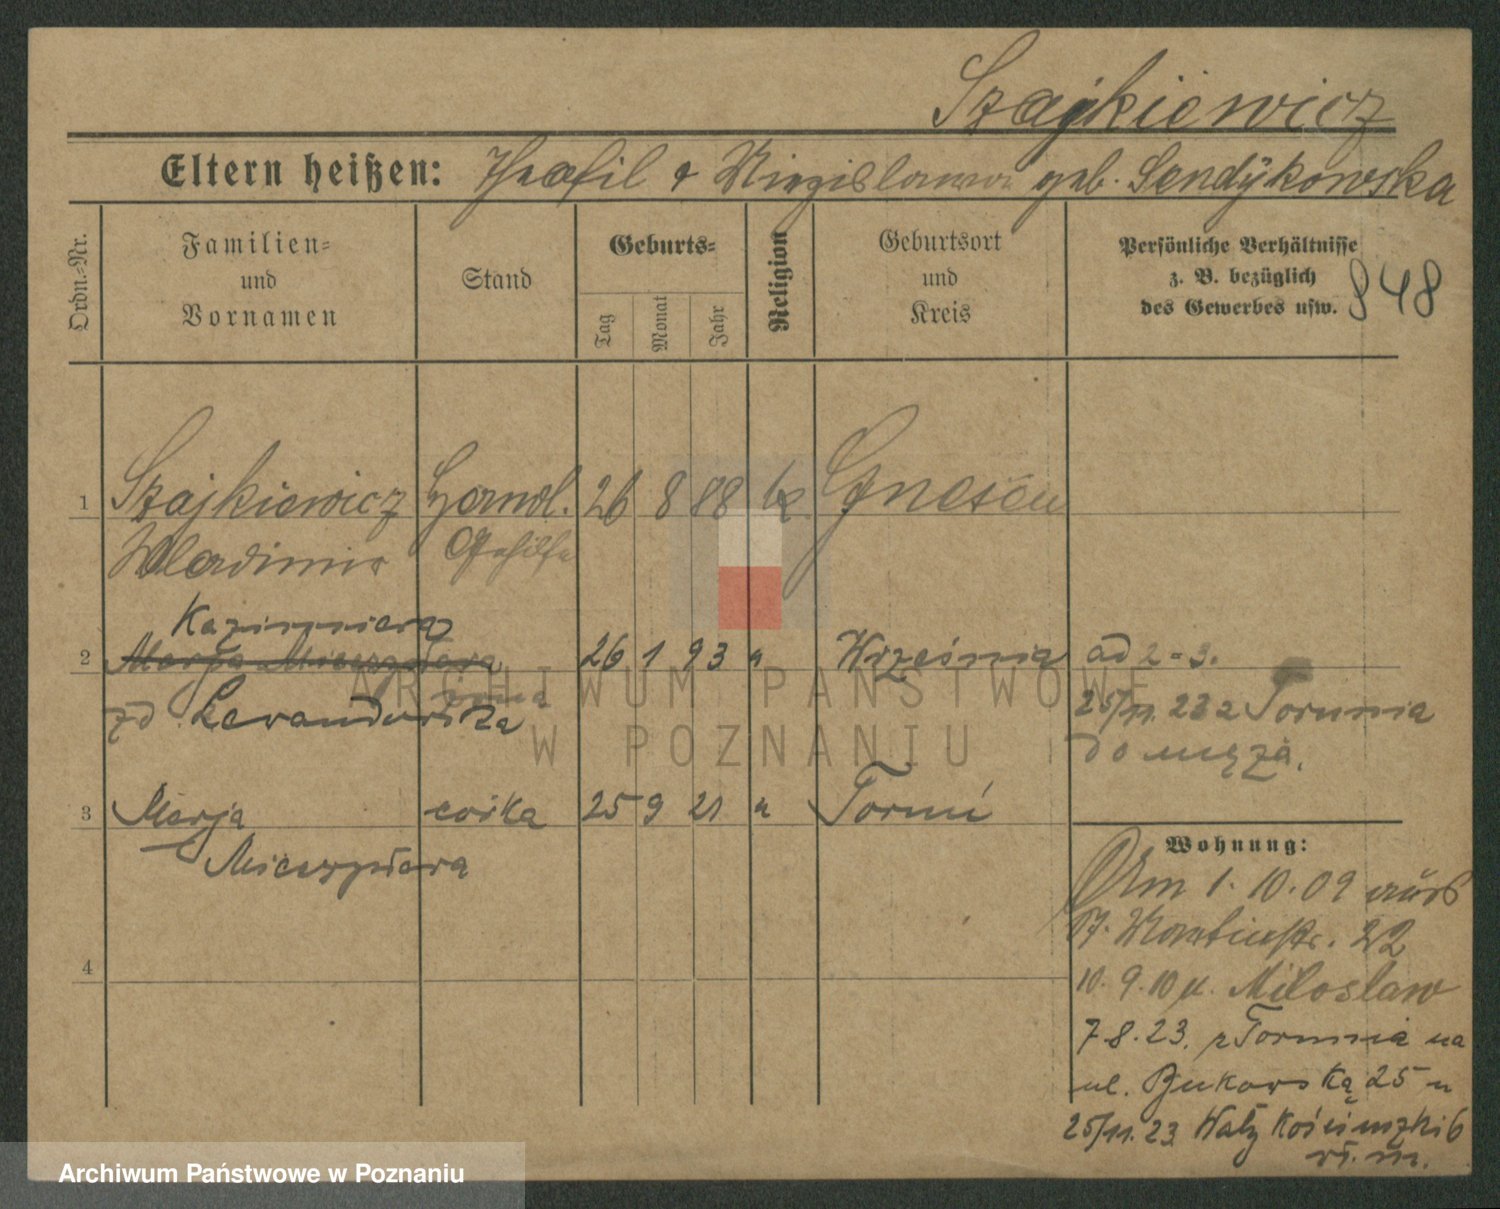 Szajkiewicz
Eltern heißen: Theofil & Miezislawa geb. Sendykowska
Ordn.-Nr.
Familien- und Vornamen
Stand
Geburts-
Tag
Monat
Jahr
Religion
Geburtsort und Kreis
Persönliche Verhältnisse
z. B. bezüglich
des Gewerbes usw.
948
1 Szajkiewicz Handl. 26 8 88 k. Gnesen
Wladimir Gehilfe
Kazimiera
2 Marja Mieczysława żona 26 1 93 " Września
zd Lewandowska
ad 2-3.
25/11. 23 z Torunia
do męża.
3 Marja córka 25 9 21 " Toruń
Mieczysława
4
Wohnung:
Am 1. 10. 09
St. Martinstr. 22
10. 9. 10 n. Miloslaw
7.8.23. z Torunia na
ul. Bukowską 25
25/11. 23 Wały Kościuszki 6
ARCHIWUM PAŃSTWOWE
W POZNANIU
Archiwum Państwowe w Poznaniu